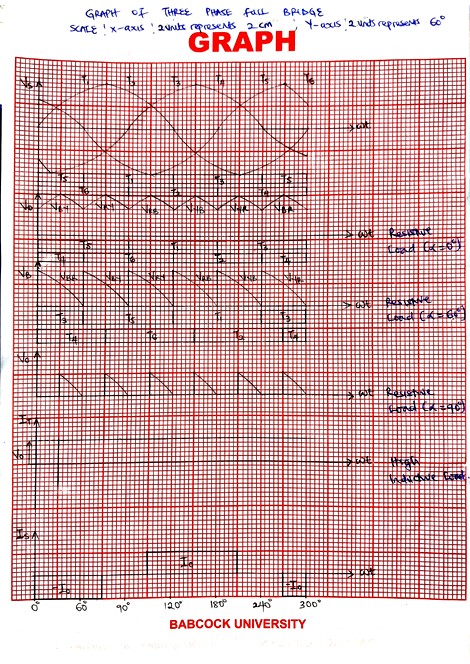 GRAPH OF THREE PHASE FULL BRIDGE
SCALE: X-axis: 2 units represents 2 cm ; Y-axis: 2 units represents 60°
GRAPH
Vs T1 T2 T3 T4 T5 T6
ωt
T5 T1 T3 T5
T6 T2 T4
Vo VRY VRB VYB VYR VBR
ωt Resistive
Load (α=0°)
T5 T1 T3
T4 T6 T2 T4
ωt Resistive
Load (α=60°)
T3 T5 T1
T4 T6 T2 T4
Vo
ωt Resistive
Load (α=90°)
IT
Vo ωt High
Inductive Load.
Is
Io
-Io -Io ωt
0° 60° 90° 120° 180° 240° 300°
BABCOCK UNIVERSITY